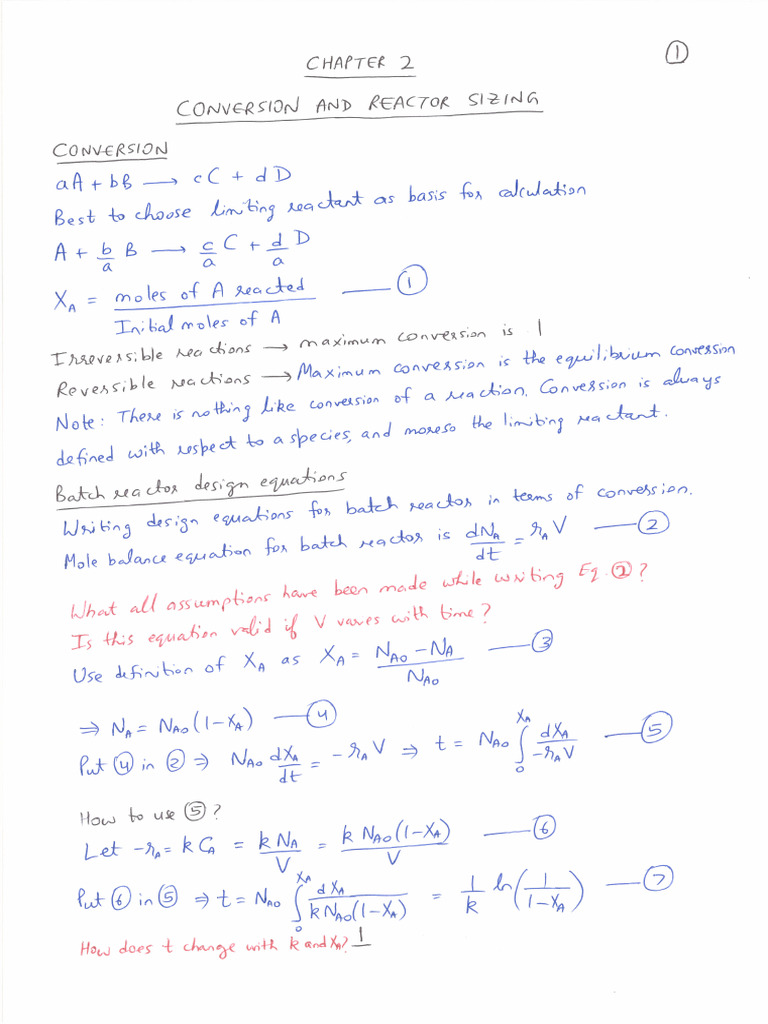 ①
CHAPTER 2
CONVERSION AND REACTOR SIZING
CONVERSION
aA + bB ⟶ cC + dD
Best to choose limiting reactant as basis for calculation
A + b/a B ⟶ c/a C + d/a D
X_A = moles of A reacted / Initial moles of A —— ①
Irreversible reactions → maximum conversion is 1
Reversible reactions → Maximum conversion is the equilibrium conversion
Note: There is nothing like conversion of a reaction. Conversion is always
defined with respect to a species, and moreso the limiting reactant.
Batch reactor design equations
Writing design equations for batch reactor in terms of conversion.
Mole balance equation for batch reactor is dN_A/dt = r_A V —— ②
What all assumptions have been made while writing Eq. ②?
Is this equation valid if V varies with time?
Use definition of X_A as X_A = (N_A0 − N_A)/N_A0 —— ③
⇒ N_A = N_A0 (1−X_A) —— ④
Put ④ in ② ⇒ N_A0 dX_A/dt = −r_A V ⇒ t = N_A0 ∫_0^X_A dX_A/(−r_A V) —— ⑤
How to use ⑤?
Let −r_A = k C_A = k N_A/V = k N_A0 (1−X_A)/V —— ⑥
Put ⑥ in ⑤ ⇒ t = N_A0 ∫_0^X_A dX_A/(k N_A0 (1−X_A)) = 1/k ln(1/(1−X_A)) —— ⑦
How does t change with k and X_A? 1